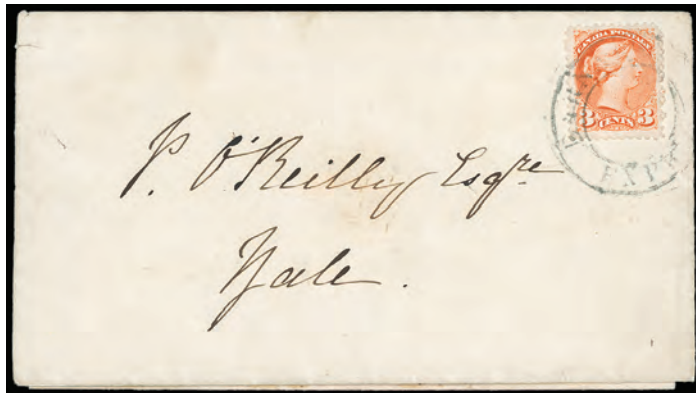 CANADA POSTAGE
3 CENTS 3
P. O'Reilly Esqre
Yale.